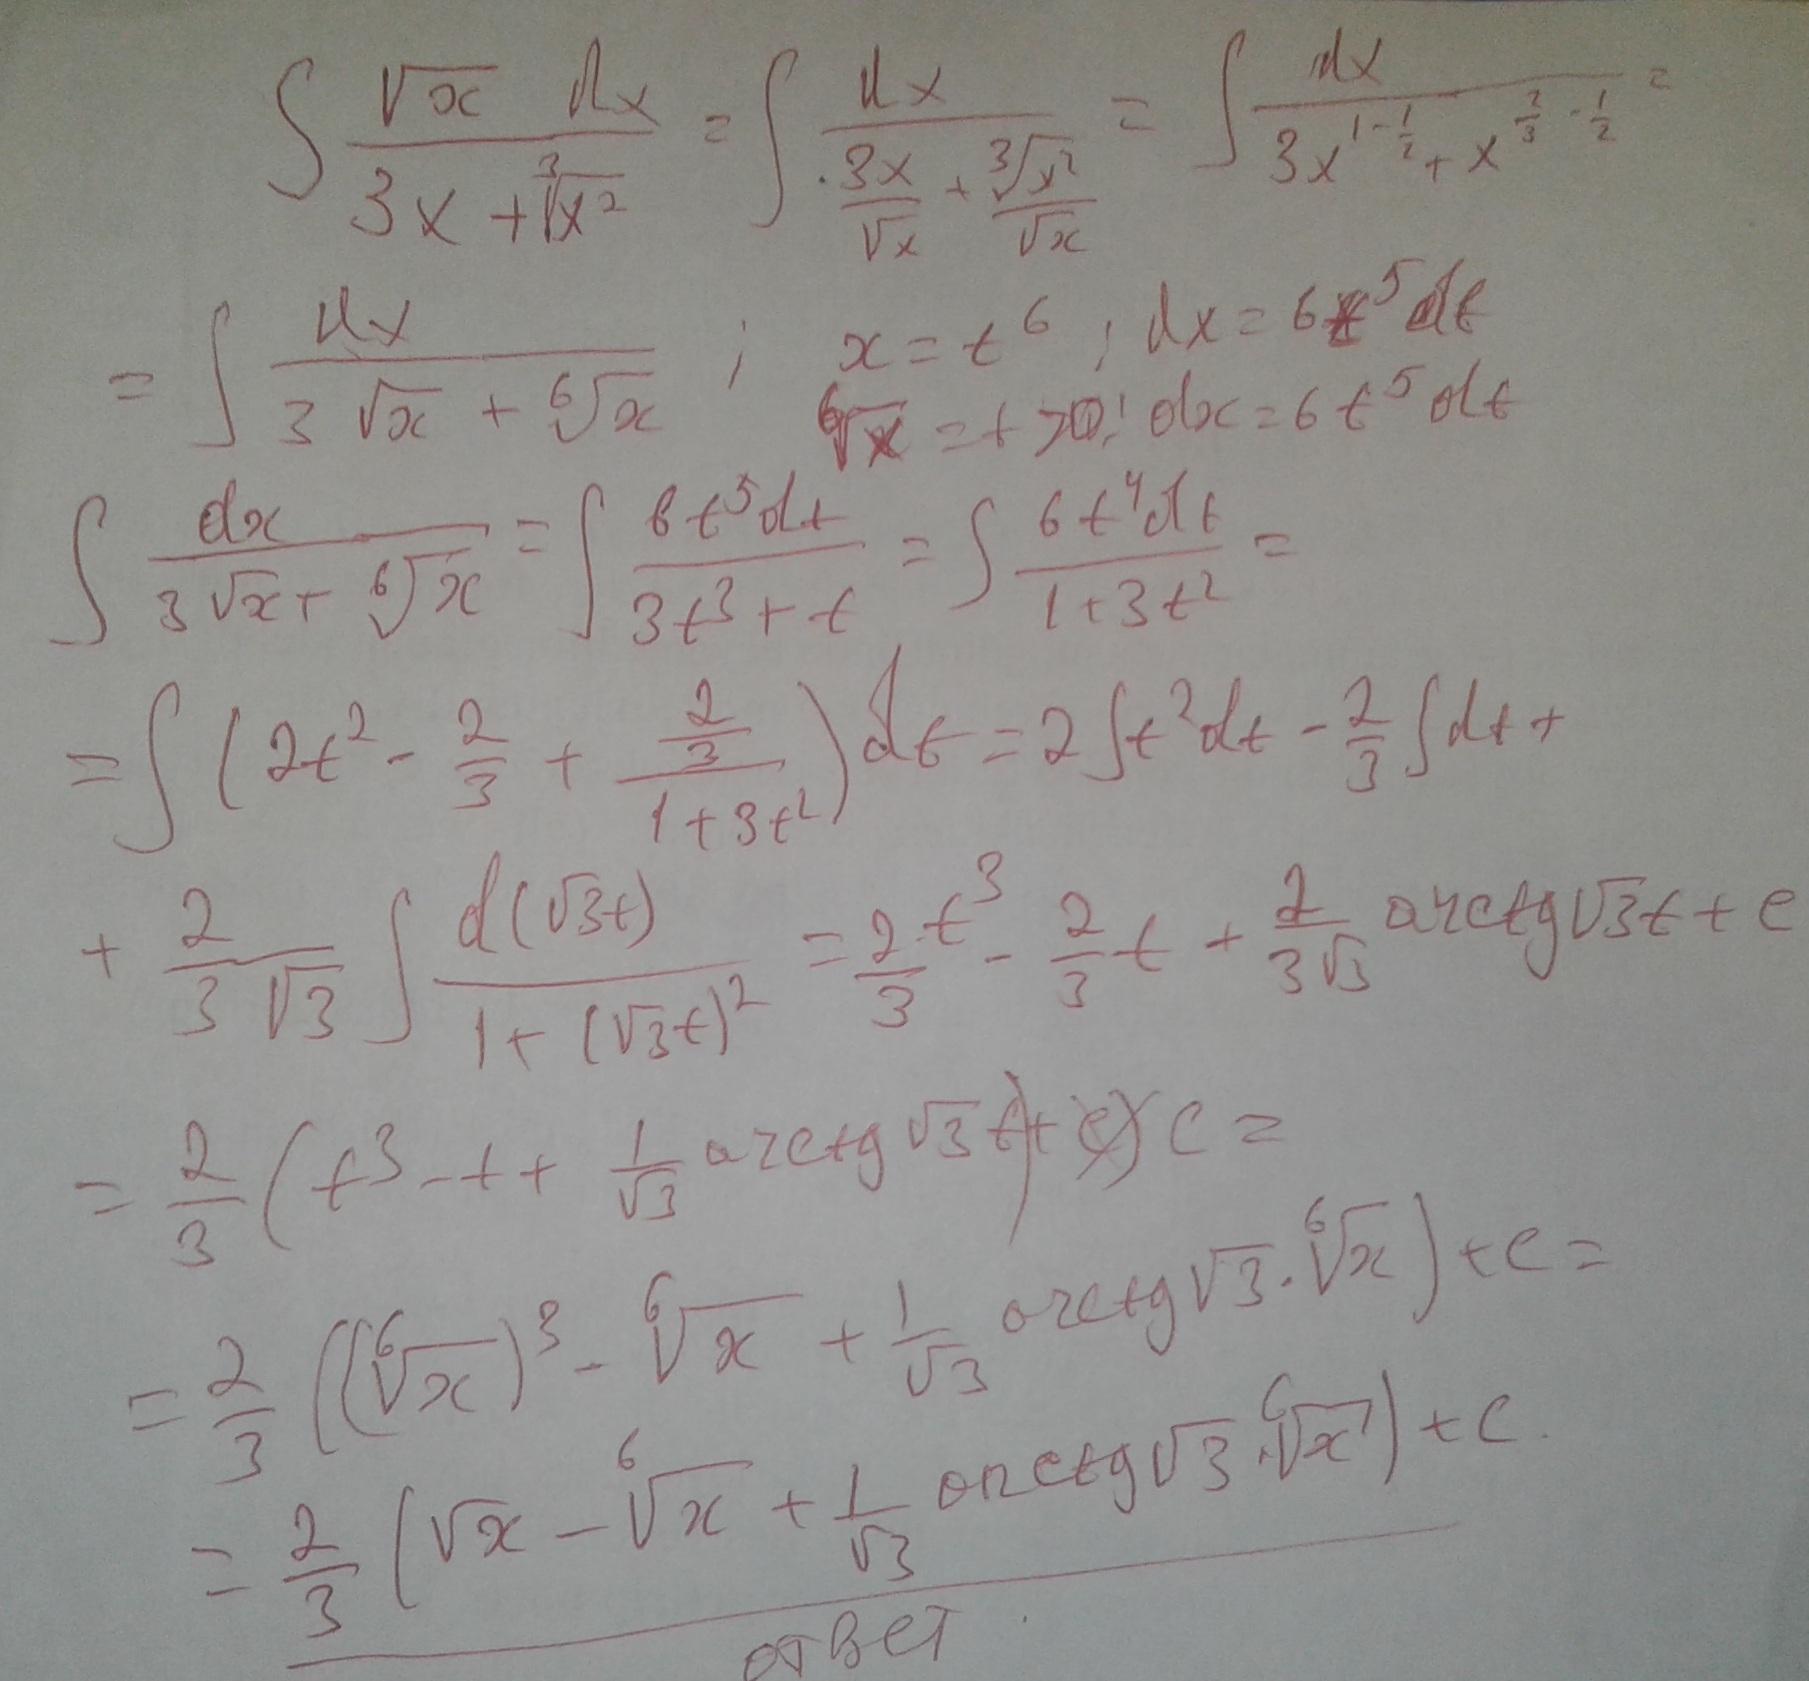 ∫ √x dx / (3x + ∛x²) = ∫ dx / (3x/√x + ∛x²/√x) = ∫ dx / (3x^(1-1/2) + x^(2/3-1/2)) =
= ∫ dx / (3√x + ⁶√x) ; x = t⁶ ; dx = 6t⁵dt
⁶√x = t > 0; dx = 6t⁵dt
∫ dx / (3√x + ⁶√x) = ∫ 6t⁵dt / (3t³ + t) = ∫ 6t⁴dt / (1+3t²) =
= ∫ (2t² - 2/3 + (2/3)/(1+3t²)) dt = 2∫t²dt - 2/3 ∫dt +
+ 2/(3√3) ∫ d(√3t) / (1+(√3t)²) = 2/3 t³ - 2/3 t + 2/(3√3) arctg√3t + c
= 2/3 (t³ - t + 1/√3 arctg√3t) + c =
= 2/3 ((⁶√x)³ - ⁶√x + 1/√3 arctg√3·⁶√x) + c =
= 2/3 (√x - ⁶√x + 1/√3 arctg√3·⁶√x) + c.
ответ